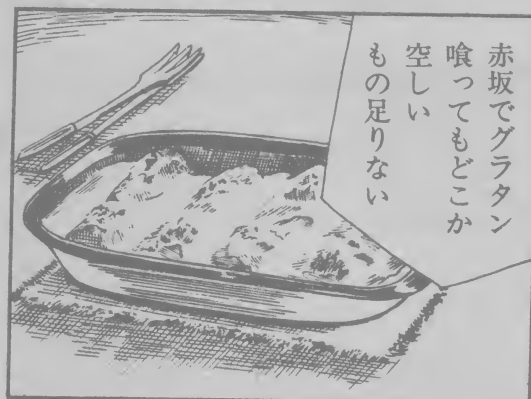 赤坂でグラタン
喰ってもどこか
空しい
もの足りない